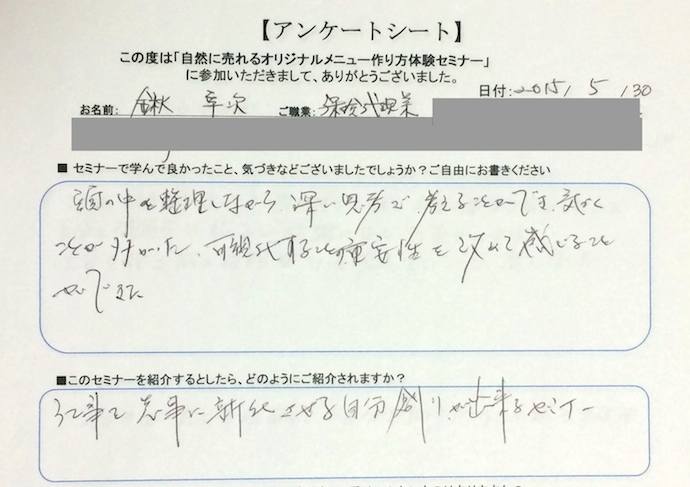 【アンケートシート】
この度は「自然に売れるオリジナルメニュー作り方体験セミナー」
に参加いただきまして、ありがとうございました。
日付:2015/5/30
お名前: 鍬 幸次 ご職業: 保険代理業
■ セミナーで学んで良かったこと、気づきなどございましたでしょうか?ご自由にお書きください
頭の中を整理しながら、深い思考で、考えることができ、気づく
ことが多かった。可視化することの重要性を改めて感じること
ができた
■このセミナーを紹介するとしたら、どのようにご紹介されますか?
仕事を志事に進化させる自分創りが出来るセミナー